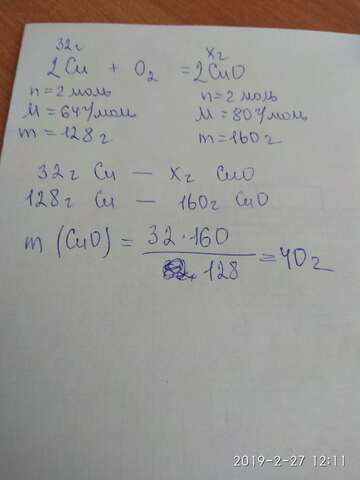 32г хг
2Cu + O₂ = 2CuO
n = 2 моль n = 2 моль
M = 64 г/моль M = 80 г/моль
m = 128 г m = 160 г
32 г Cu — х г CuO
128 г Cu — 160 г CuO
m (CuO) = 32 · 160 / 128 = 40 г
2019-2-27 12:11